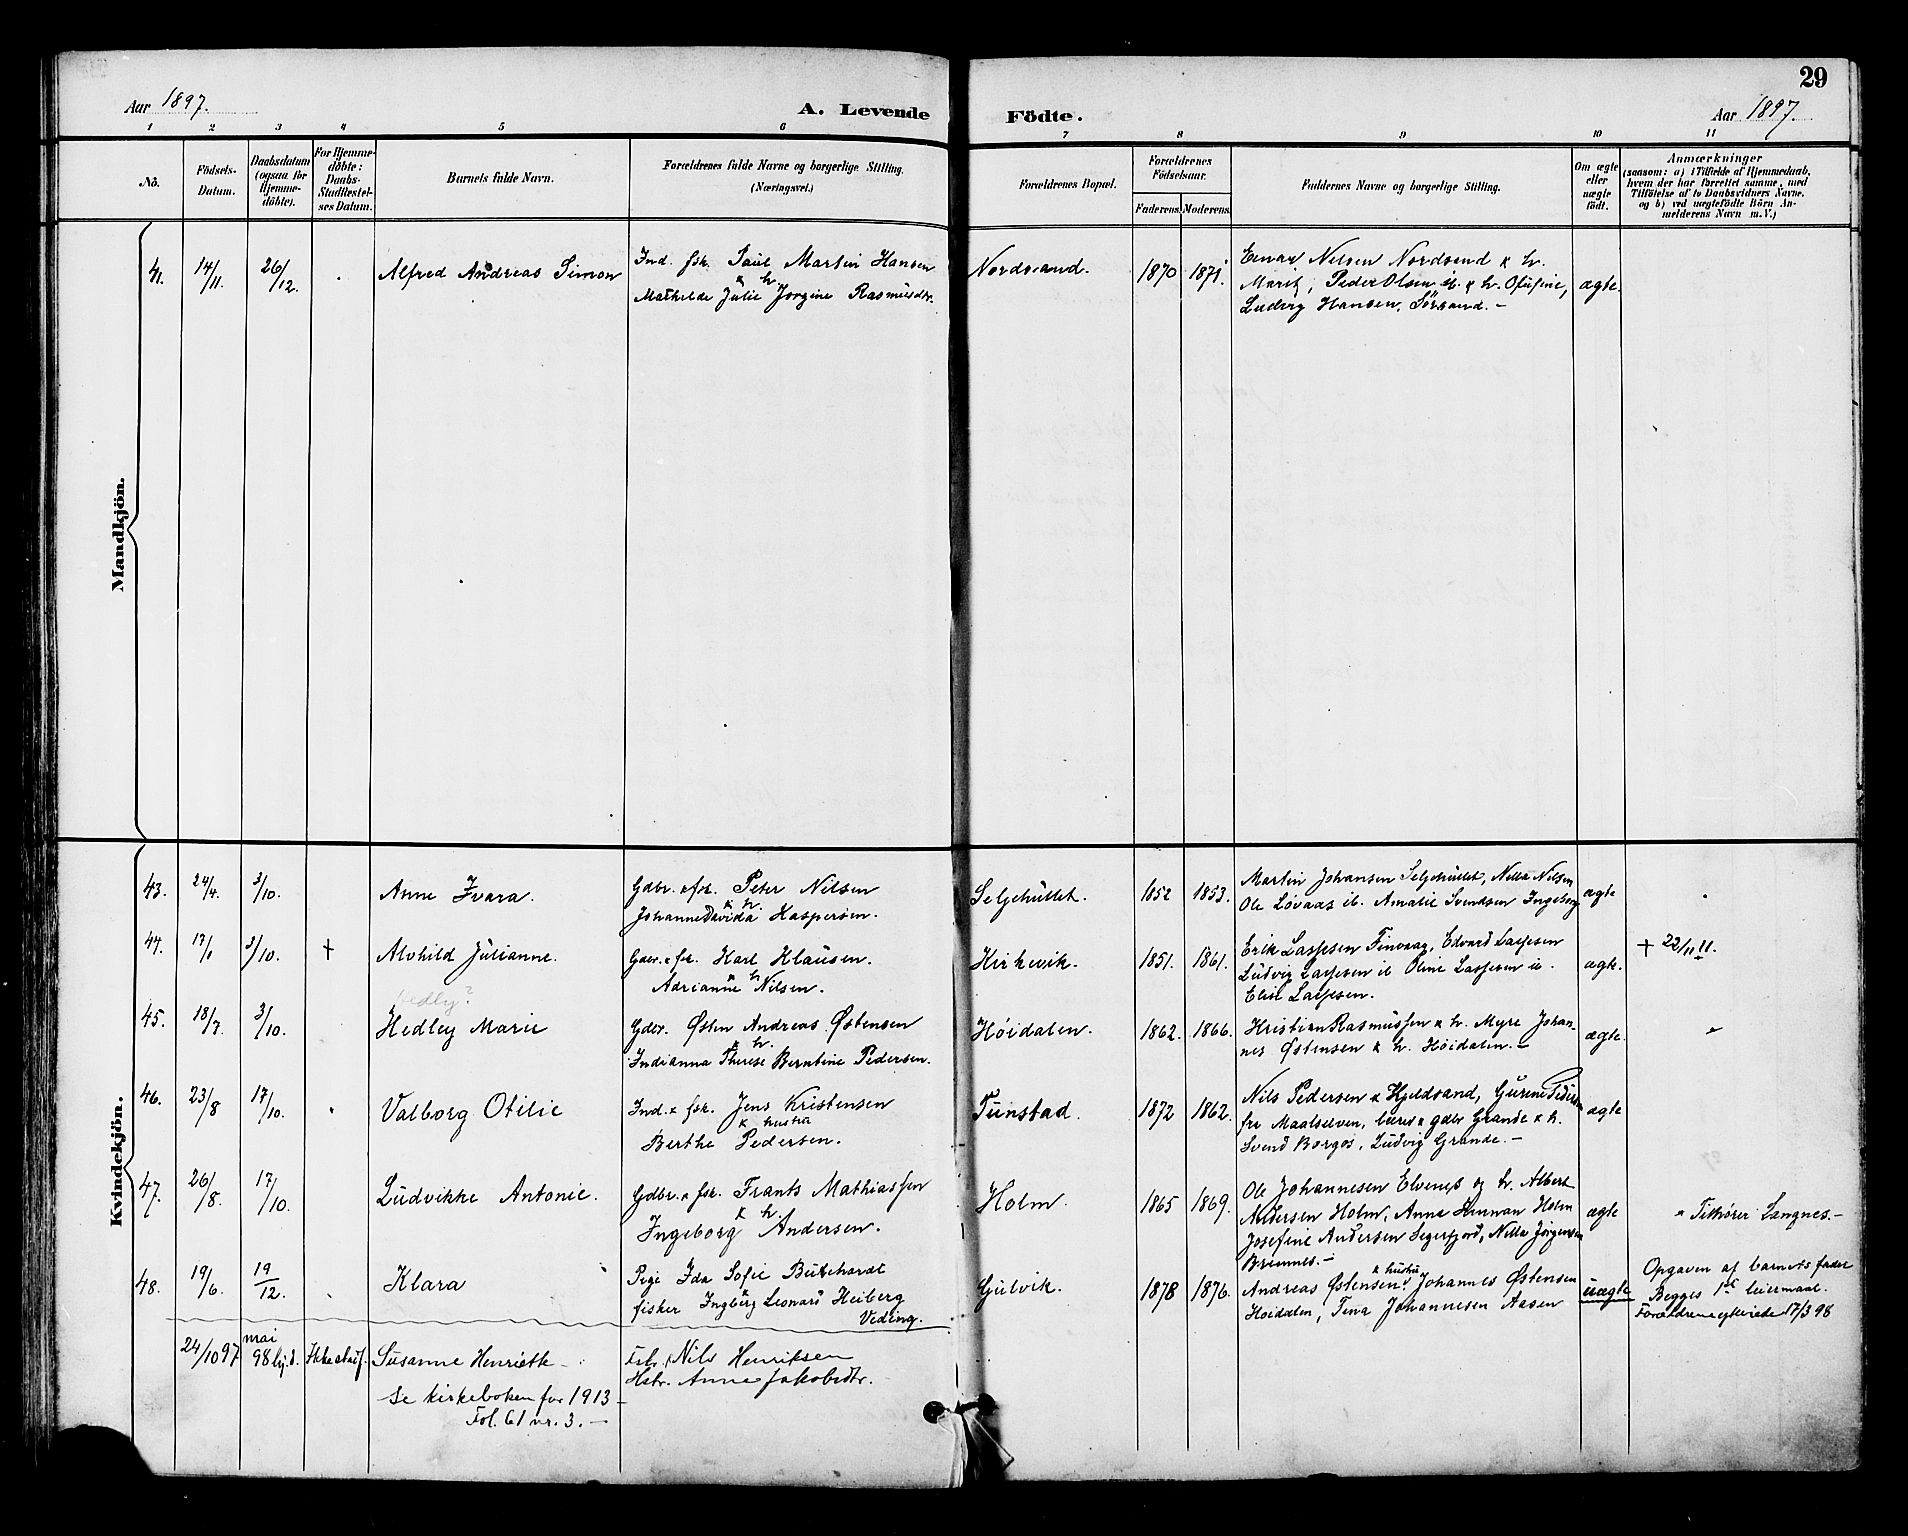 29
Aar 1897.
A. Levende Födte.
Aar 1897.
1 2 3 4 5 6 7 8 9 10 11
No.
Födsels-
Datum.
Daabsdatum
(ogsaa for
Hjemme-
döbte).
For Hjemme-
döbte:
Daabs-
Stadfæstel-
ses Datum.
Barnets fulde Navn.
Forældrenes fulde Navne og borgerlige Stilling.
(Næringsvei.)
Forældrenes Bopæl.
Forældrenes
Födselsaar.
Faderens. Moderens.
Faddernes Navne og borgerlige Stilling.
Om ægte
eller
uægte
födt.
Anmærkninger
(saasom: a) i Tilfælde af Hjemmedaab,
hvem der har forrettet samme, med
Tilföielse af to Daabsvidners Navne.
og b) ved uægtefödte Börn An-
melderens Navn m.V.)
Mandkjön.
41. 14/11. 26/12 Alfred Andreas Simon
Ind. fsk. Paul Martin Hansen
& h.
Mathilde Julie Jorgine Rasmusdtr.
Nordsand. 1870 1871.
Einar Nilsen Nordsand & h.
Marit, Peder Olsen ib. & h. Olufine,
Ludvig Hansen, Sørsand. –
ægte.
Kvindekjön.
43. 24/4. 3/10. Anne Ivara.
Gdbr. & fsk. Peter Nilsen
& h.
Johanne Davida Kaspersen.
Seljehullet. 1852 1853.
Martin Johansen Seljehullet, Nilla Nilsen
Ole Løvaas ib. Amalie Svendsen Ingeborg
ægte
44. 17/ 3/10. + Alvhild Julianne.
Gdbr. & fsk. Karl Klausen.
& h
Adrianne Nilsen.
Kirkevik. 1851. 1861.
Erik Lassesen Finvaag, Edvard Lassesen
Ludvig Lassesen ib Oline Lassesen ib.
Elise Lassesen.
ægte.
+ 22/11 11.
Hedly?
45. 18/7. 3/10. Hedley Marie
Gdbr. Østen Andreas Østensen
& h.
Indianna Therese Berntine Pedersen.
Høidalen. 1862. 1866.
Kristian Rasmussen & h. Myre Johan-
nes Østensen & h. Høidalen. –
ægte.
46. 23/8 17/10. Valborg Otilie
Ind. & fsk. Jens Kristensen
& hustru
Berthe Pedersen.
Tunstad. 1872 1862.
Nils Pedersen & Hjeldsand, Gurine Peders
fra Maalselven, gdbr Grande & h.
Svend Borgos, Ludvig Grande. –
ægte
47. 26/8. 17/10. Ludvikke Antonie.
Gdbr. & fsk. Frants Mathiassen
& h.
Ingeborg Andersen.
Holm. 1865 1869.
Ole Johannesen Elvenes og h. Albert
Andersen Holm, Anna Holm
Josefine Andersen Segerfjord, Nilla Jørgensen
Bremnes. –
ægte
Tilhører Langnes. –
48. 19/6. 19/12. Klara
Pige Ida Sofie
&
fisker Ingberg Leonard Heiberg
Veding.
Gulvik. 1878 1876.
& hustru
Andreas Østensen, Johannes Østensen
Høidalen, Tina Johannesen Aasen
uægte
Opgaven af barnets fader
Begges 1st leiermaal.
Forældrene egteviede 17/3 98
24/10 97 mai
98 hj.d. Ikke stadf. Susanne Henriette
Fsk. Nils Henriksen
Hstr. Anne Jakobsdtr.
Se kirkeboken for 1913 –
Fol. 61 nr. 3. –